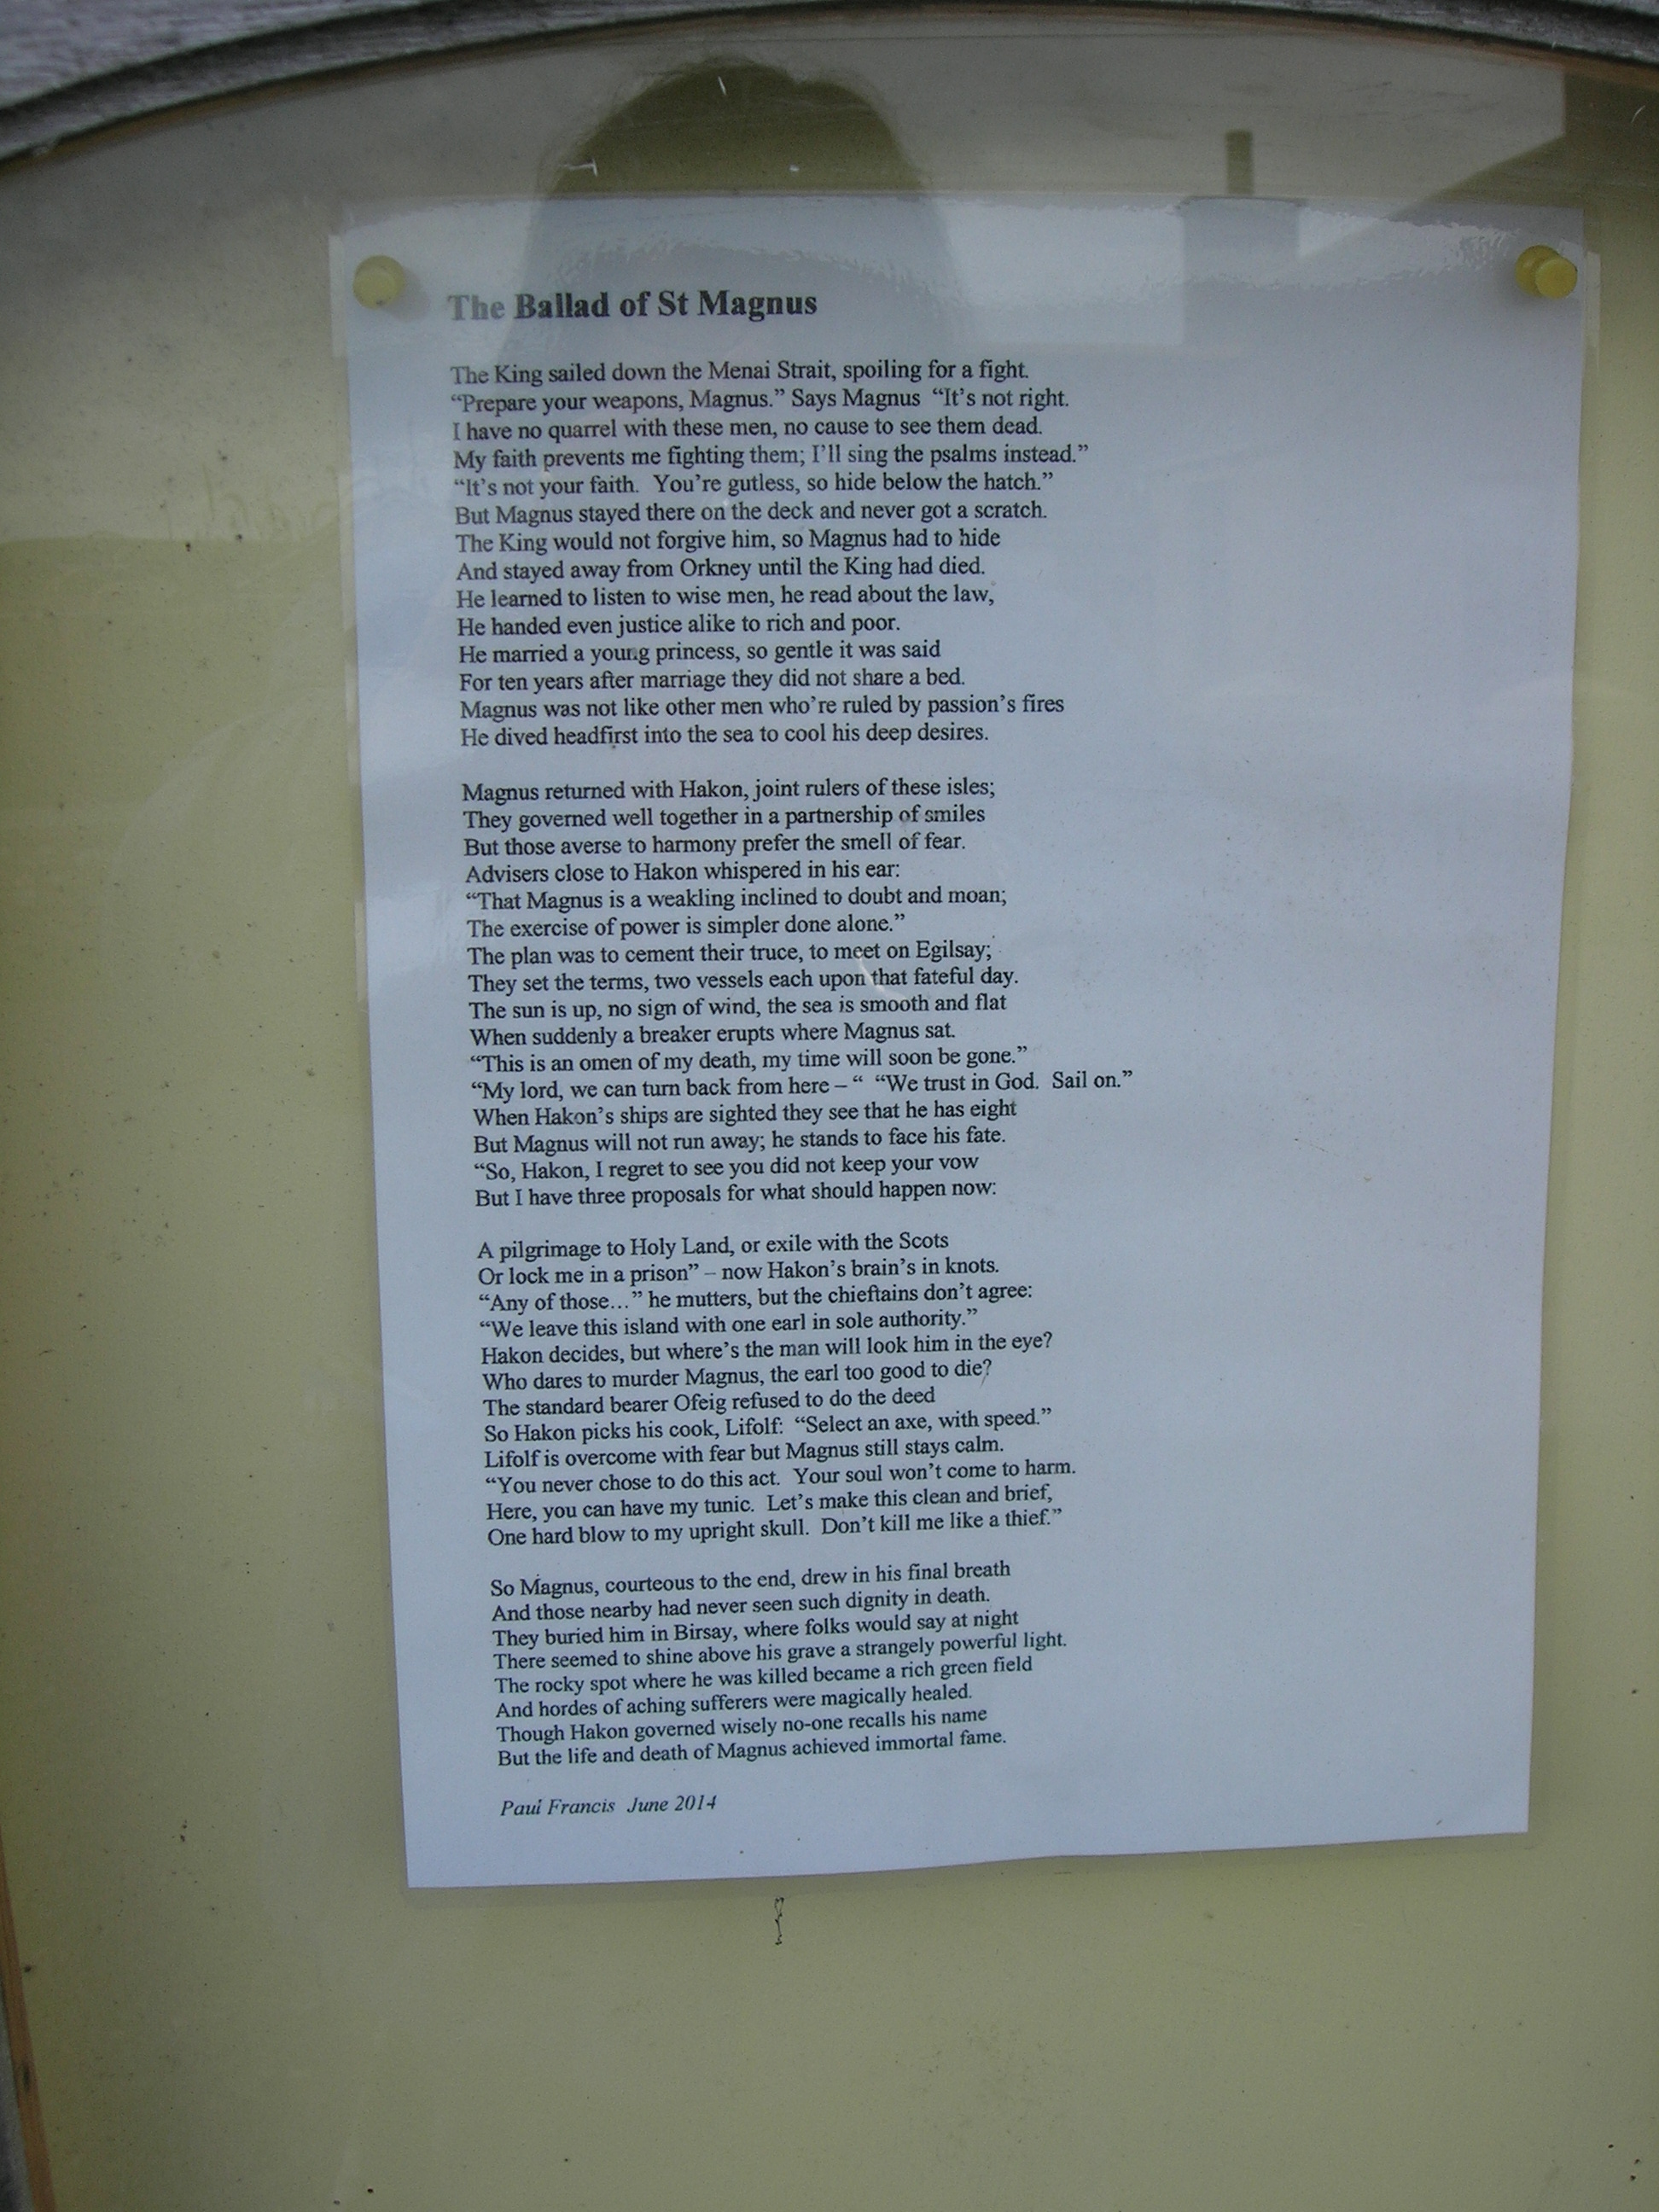 The Ballad of St Magnus
The King sailed down the Menai Strait, spoiling for a fight.
“Prepare your weapons, Magnus.” Says Magnus “It’s not right.
I have no quarrel with these men, no cause to see them dead.
My faith prevents me fighting them; I’ll sing the psalms instead.”
“It’s not your faith. You’re gutless, so hide below the hatch.”
But Magnus stayed there on the deck and never got a scratch.
The King would not forgive him, so Magnus had to hide
And stayed away from Orkney until the King had died.
He learned to listen to wise men, he read about the law,
He handed even justice alike to rich and poor.
He married a young princess, so gentle it was said
For ten years after marriage they did not share a bed.
Magnus was not like other men who’re ruled by passion’s fires
He dived headfirst into the sea to cool his deep desires.
Magnus returned with Hakon, joint rulers of these isles;
They governed well together in a partnership of smiles
But those averse to harmony prefer the smell of fear.
Advisers close to Hakon whispered in his ear:
“That Magnus is a weakling inclined to doubt and moan;
The exercise of power is simpler done alone.”
The plan was to cement their truce, to meet on Egilsay;
They set the terms, two vessels each upon that fateful day.
The sun is up, no sign of wind, the sea is smooth and flat
When suddenly a breaker erupts where Magnus sat.
“This is an omen of my death, my time will soon be gone.”
“My lord, we can turn back from here – “ “We trust in God. Sail on.”
When Hakon’s ships are sighted they see that he has eight
But Magnus will not run away; he stands to face his fate.
“So, Hakon, I regret to see you did not keep your vow
But I have three proposals for what should happen now:
A pilgrimage to Holy Land, or exile with the Scots
Or lock me in a prison” – now Hakon’s brain’s in knots.
“Any of those…” he mutters, but the chieftains don’t agree:
“We leave this island with one earl in sole authority.”
Hakon decides, but where’s the man will look him in the eye?
Who dares to murder Magnus, the earl too good to die?
The standard bearer Ofeig refused to do the deed
So Hakon picks his cook, Lifolf: “Select an axe, with speed.”
Lifolf is overcome with fear but Magnus still stays calm.
“You never chose to do this act. Your soul won’t come to harm.
Here, you can have my tunic. Let’s make this clean and brief,
One hard blow to my upright skull. Don’t kill me like a thief.”
So Magnus, courteous to the end, drew in his final breath
And those nearby had never seen such dignity in death.
They buried him in Birsay, where folks would say at night
There seemed to shine above his grave a strangely powerful light.
The rocky spot where he was killed became a rich green field
And hordes of aching sufferers were magically healed.
Though Hakon governed wisely no-one recalls his name
But the life and death of Magnus achieved immortal fame.
Paul Francis June 2014